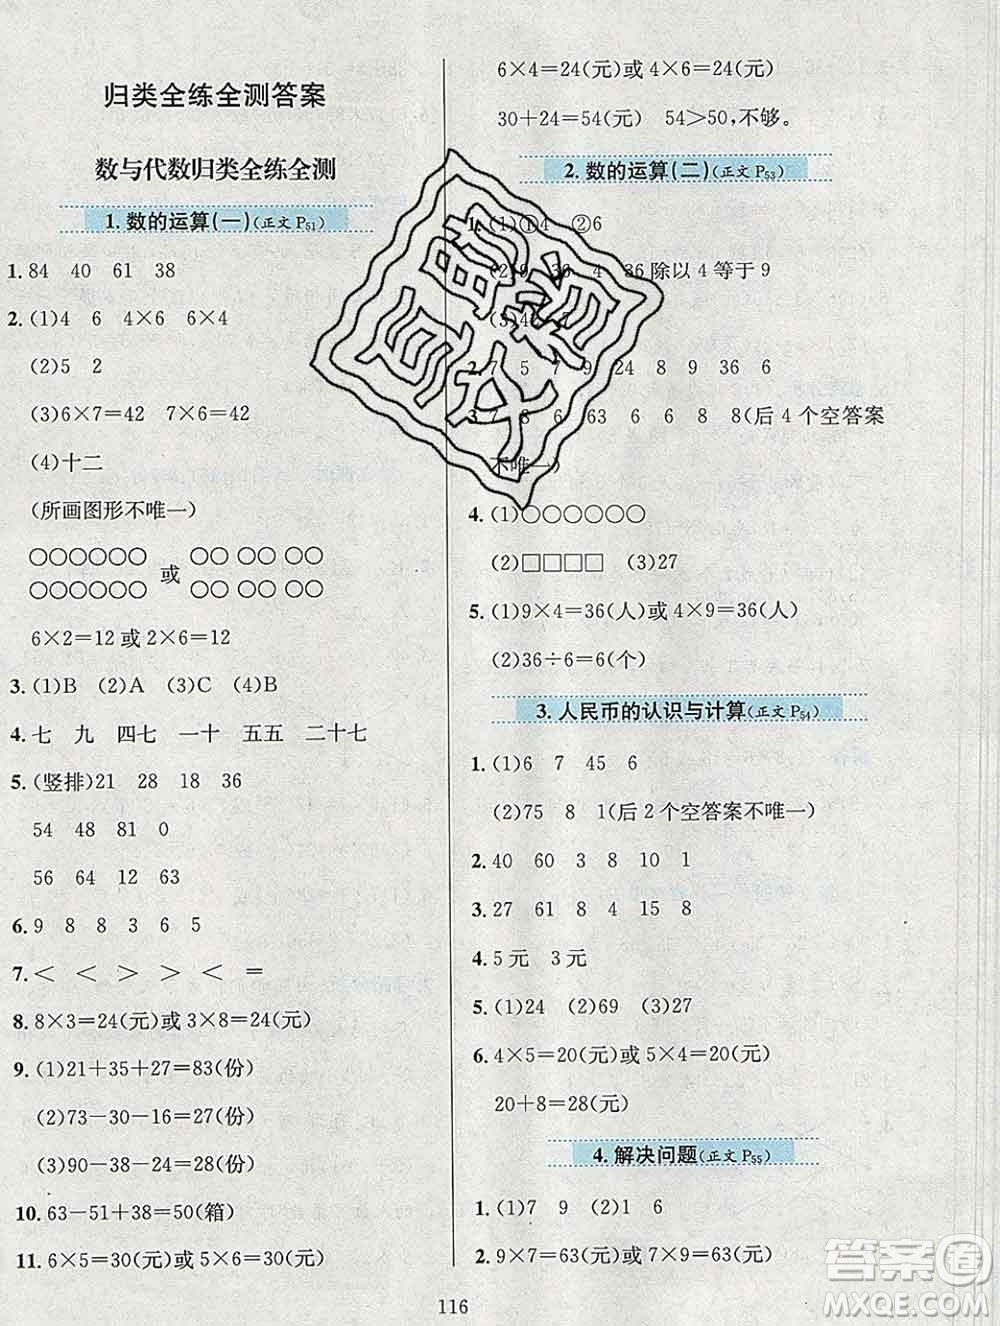 归类全练全测答案
数与代数归类全练全测
1. 数的运算(一)(正文 P51)
1. 84 40 61 38
2. (1)4 6 4×6 6×4
(2)5 2
(3)6×7=42 7×6=42
(4)十二
(所画图形不唯一)
○○○○○○ 或 ○○ ○○ ○○
○○○○○○ ○○ ○○ ○○
6×2=12 或 2×6=12
3. (1)B (2)A (3)C (4)B
4. 七 九 四七 一十 五五 二十七
5. (竖排)21 28 18 36
54 48 81 0
56 64 12 63
6. 9 8 8 3 6 5
7. < < > > < =
8. 8×3=24(元)或 3×8=24(元)
9. (1)21+35+27=83(份)
(2)73-30-16=27(份)
(3)90-38-33=19(份)
10. 63-51+38=50(箱)
11. 6×5=30(元)或 5×6=30(元)
6×4=24(元)或 4×6=24(元)
30+24=54(元) 54>50,不够。
2. 数的运算(二)(正文 P53)
1. (1)①4 ②6
(2)9 36 4 36 除以 4 等于 9
(3)4 7
2. 7 5 7 9 24 8 9 36 9
3. 7 8 6 63 6 6 8 8(后 4 个空答案
不唯一)
4. (1)○○○○○○
(2)□□□□ (3)27
5. (1)9×4=36(人)或 4×9=36(人)
(2)36÷6=6(个)
3. 人民币的认识与计算(正文 P54)
1. (1)6 7 45 6
(2)75 8 1(后 2 个空答案不唯一)
2. 40 60 3 8 10 1
3. 27 61 8 4 15 8
4. 5 元 3 元
5. (1)24 (2)69 (3)27
6. 4×5=20(元)或 5×4=20(元)
20+8=28(元)
4. 解决问题(正文 P55)
1. (1)7 9 (2)1 6
2. 9×7=63(元)或 7×9=63(元)
116
答案圈
MXQE.COM